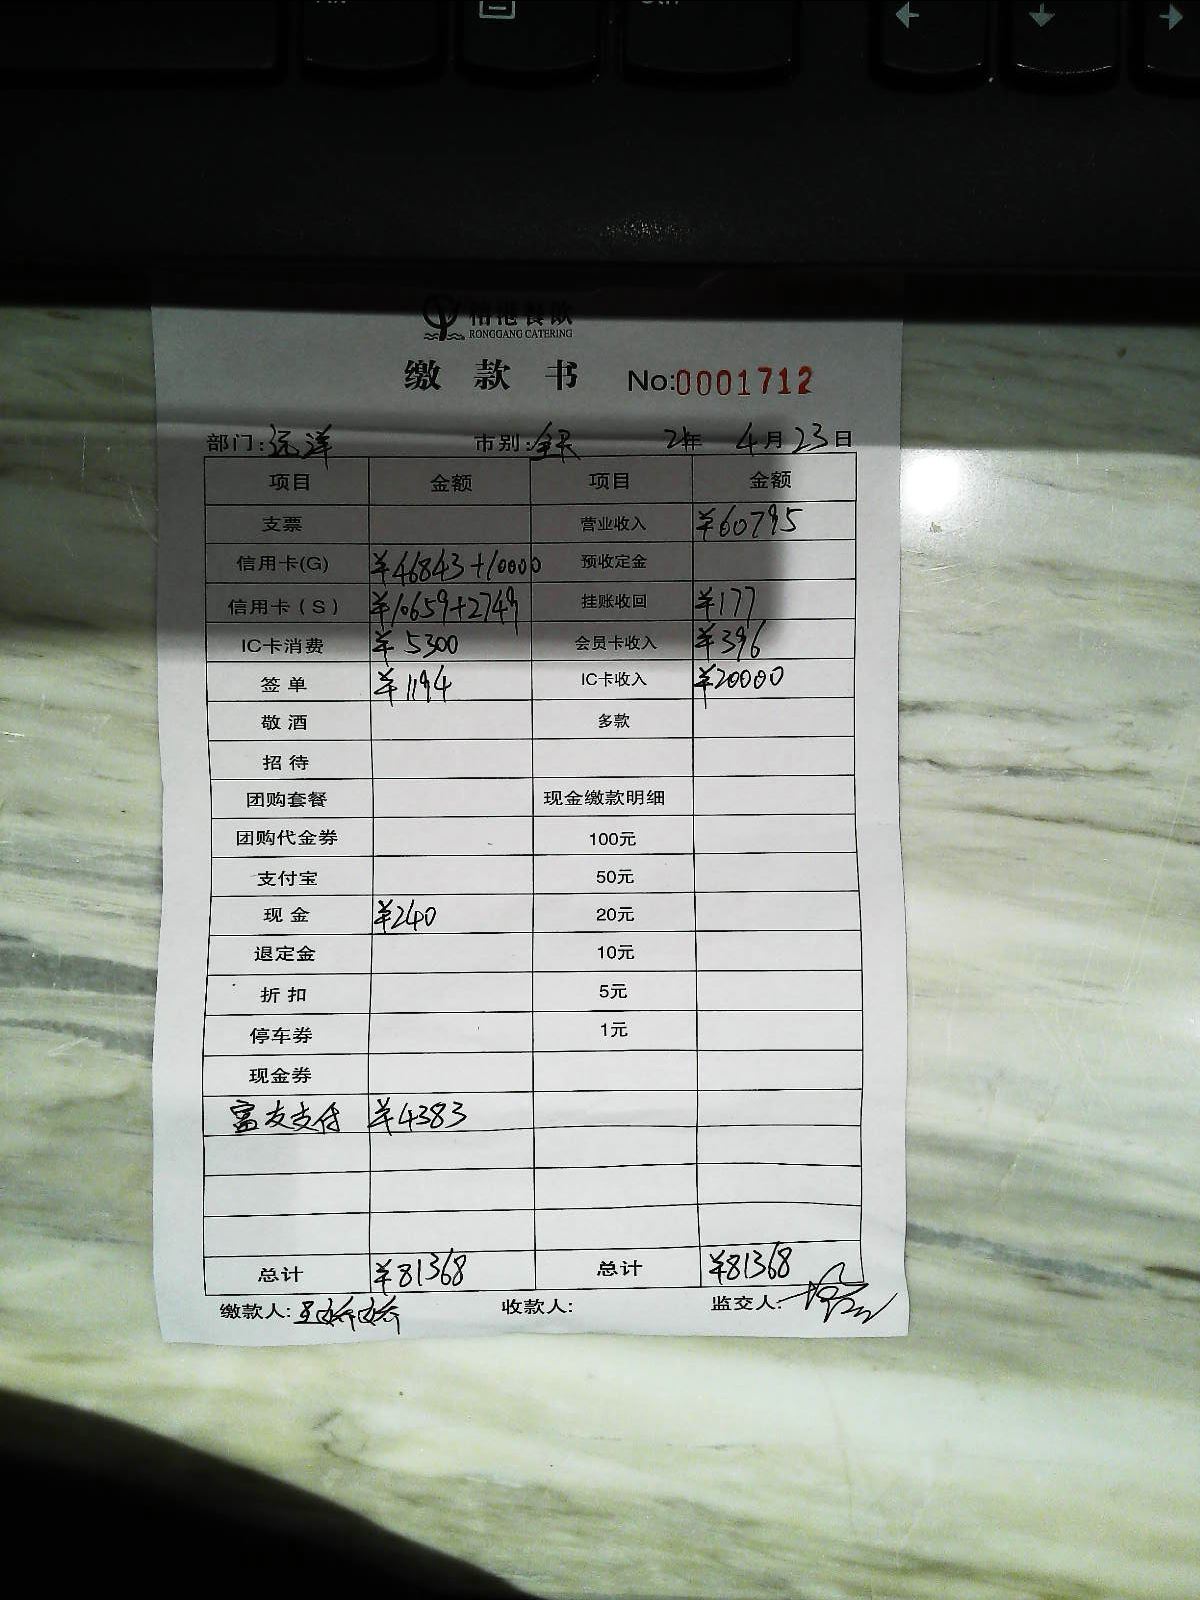 餐饮
RONGGANG CATERING
缴款书 No:0001712
部门:远洋 市别:全天 21年 4月23日
项目 金额 项目 金额
支票 营业收入 ¥60795
信用卡(G) ¥46843+10000 预收定金
信用卡(S) ¥10659+2749 挂账收回 ¥177
IC卡消费 ¥5300 会员卡收入 ¥396
签单 ¥1194 IC卡收入 ¥20000
敬酒 多款
招待
团购套餐 现金缴款明细
团购代金券 100元
支付宝 50元
现金 ¥240 20元
退定金 10元
折扣 5元
停车券 1元
现金券
富友支付 ¥4383
总计 ¥81368 总计 ¥81368
缴款人: 收款人: 监交人: